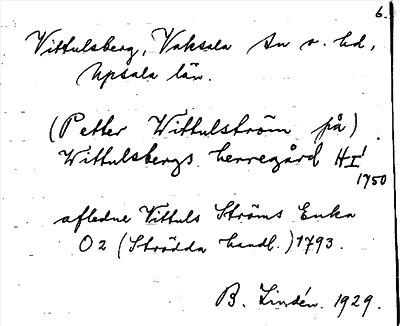 6.
Vittulsberg, Vaksala sn o. hd,
Upsala län.
(Petter Wittulström på)
Wittulsbergs herregård HI¹
1750
afledne Vittuls Ströms Enka
O2 (Strödda handl.) 1793.
B. Lindén. 1929.